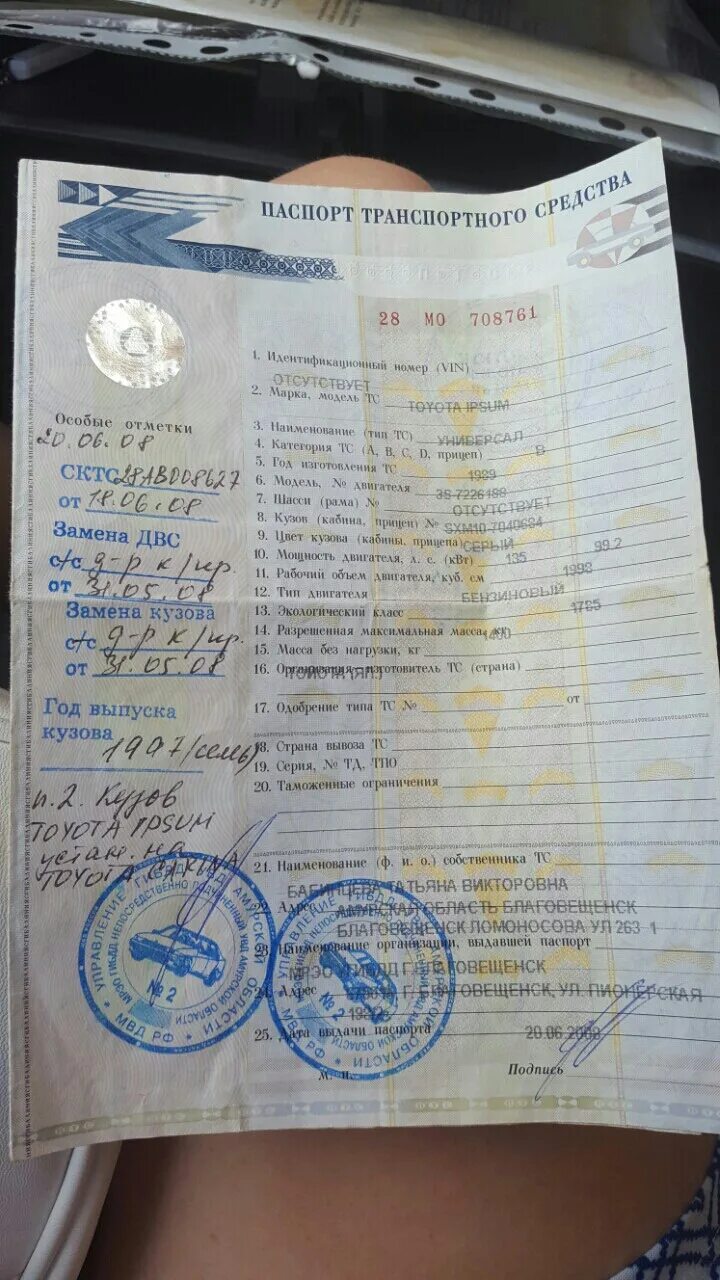 ПАСПОРТ ТРАНСПОРТНОГО СРЕДСТВА
28 МО 708761
Особые отметки
20.06.08
СКТС 28АВ008627
от 18.06.08
Замена ДВС
с/с д-р к/пр.
от 31.05.08
Замена кузова
с/с д-р к/пр.
от 31.05.08
Год выпуска
кузова
1997/семь)
п.2. Кузов
TOYOTA IPSUM
устан. на
TOYOTA
1. Идентификационный номер (VIN)
ОТСУТСТВУЕТ
2. Марка, модель ТС TOYOTA IPSUM
3. Наименование (тип ТС) УНИВЕРСАЛ
4. Категория ТС (А, В, С, D, прицеп) В
5. Год изготовления ТС 1989
6. Модель, № двигателя 3S 7226188
7. Шасси (рама) № ОТСУТСТВУЕТ
8. Кузов (кабина, прицеп) № SXM10-7040684
9. Цвет кузова (кабины, прицепа) СЕРЫЙ
10. Мощность двигателя, л. с. (кВт) 135 99.2
11. Рабочий объем двигателя, куб. см 1998
12. Тип двигателя БЕНЗИНОВЫЙ
13. Экологический класс
14. Разрешенная максимальная масса, кг 1785
15. Масса без нагрузки, кг 1400
16. Организация-изготовитель ТС (страна)
ТОЙОТА (ЯП.)
17. Одобрение типа ТС № от
18. Страна вывоза ТС
19. Серия, № ТД, ТПО
20. Таможенные ограничения
21. Наименование (ф. и. о.) собственника ТС
БАБИНЦЕВА ТАТЬЯНА ВИКТОРОВНА
22. Адрес АМУРСКАЯ ОБЛАСТЬ БЛАГОВЕЩЕНСК
БЛАГОВЕЩЕНСК ЛОМОНОСОВА УЛ 263 1
23. Наименование организации, выдавшей паспорт
МРЭО УГИБДД Г.БЛАГОВЕЩЕНСК
24. Адрес Г. БЛАГОВЕЩЕНСК, УЛ. ПИОНЕРСКАЯ
25. Дата выдачи паспорта 20.06.2008
М. П.
Подпись
УПРАВЛЕНИЕ ГИБДД УВД АМУРСКОЙ ОБЛАСТИ
МВД РФ
№ 2
№ 2
МВД РФ